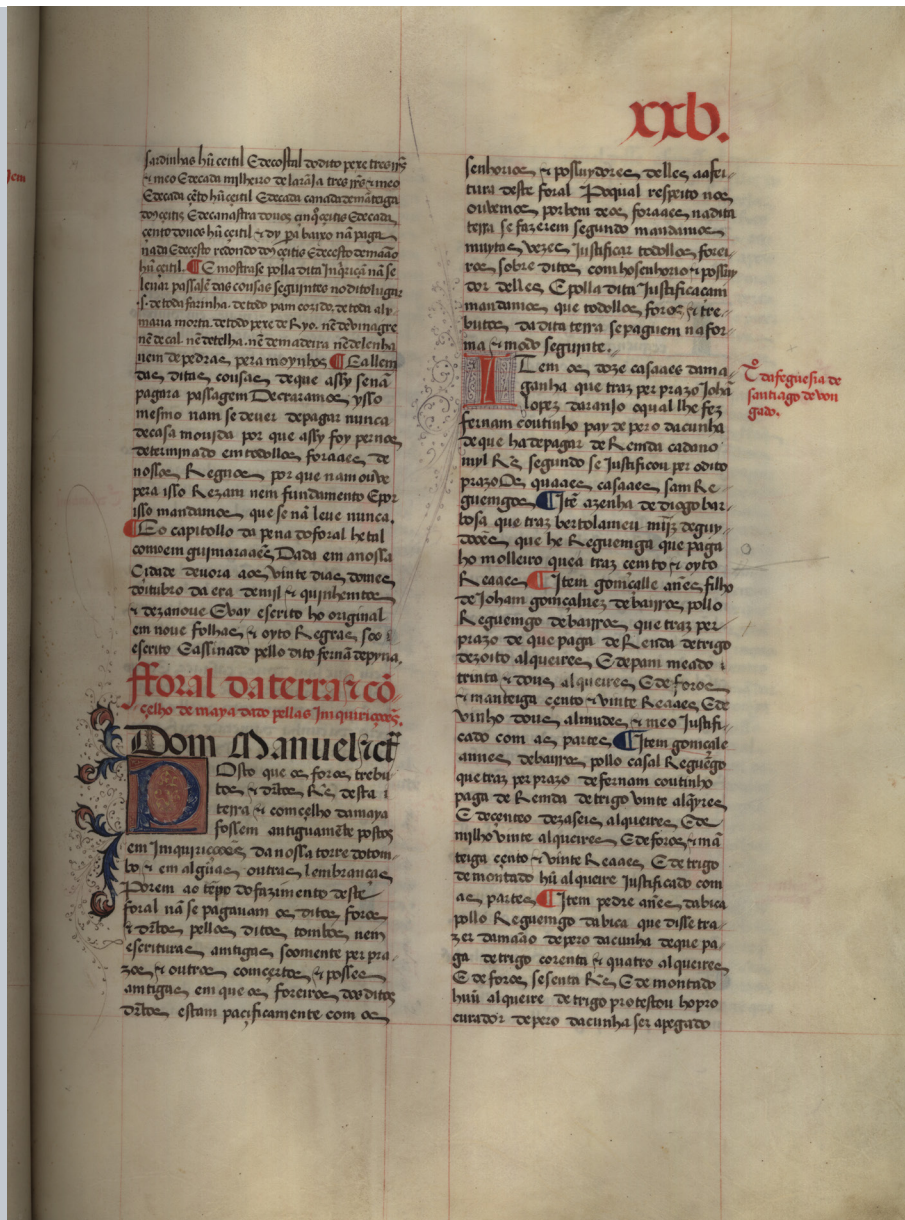 xxb.
sardinhas hũ ceitil E de costal do dito pexe tres rrs̃
⁊ meo E de cada milheiro de laranJa tres rrs̃ ⁊ meo
E de cada çẽto hũ ceitil E de cada canada de mãteiga
doꝰ ceitis E de canastra douos cinq̃ ceitis E de cada
cento douos hũ ceitil ⁊ dy pa baixo nã paga
nada E de cesto redondo doꝰ ceitis E de cesto de maão
hũ ceitil. ¶ E mostrase polla dita Inq̃riçã nã se
leuar passajẽ das cousas seguintes no dito lugar
.s. de toda farinha. de todo pam cozido. de toda aly-
maria morta. de todo pexe de Ryo. nẽ de vinagre
nẽ de cal. nẽ de telha. nẽ de madeira nẽ de lenha
nem de pedras pera moynhos ¶ E allem
das ditas cousas de que assy se nã
pagara passagem Decraramos ysso
mesmo nam se deuer de pagar nunca
de casa mouida por que assy foy per nos
determinado em todollos foraaes de
nossos Regnos por que nam ouve
pera isso Rezam nem fundamento E por
isso mandamos que se nã leue nunca.
¶ E o capitollo da pena do foral he tal
como em guimaraães Dada em a nossa
Cidade deuora aos vinte dias do mes
doitubro da era de mil ⁊ quinhentos
⁊ dezanoue E vay escrito ho original
em noue folhas ⁊ oyto Regras soo i
escrito E assinado pello dito fernã de pyna.
fforal da terra ⁊ cõ-
çelho de maya dado pellas Imquiriçoões.
Dom Manuel ⁊cr̃
Posto que os foros trebu
tos ⁊ dr̃tos Rẽs desta i
terra ⁊ comçelho da maya
fossem antiguamẽte postos
em Imquiriçoões da nossa torre do tom-
bo ⁊ em algũas outras lembranças
Porem ao tẽpo do fazimento deste
foral nã se pagauam os ditos foros
⁊ dr̃tos pellos ditos tombos nem
escrituras amtigas soomente per pra-
zos ⁊ outros comçertos ⁊ posses
amtigas em que os foreiros dos ditos
dr̃tos estam paçificamente com os
senhorios ⁊ possuydores delles aa fei-
tura deste foral Po qual respeito nos
ouvemos por bem de os foraaes na dita
terra se fazerem segundo mandamos
muytas vezes Justificar todollos forei-
ros sobre ditos com ho senhorio ⁊ possuy
dor delles E polla dita Justificacam
mandamos que todollos foros ⁊ tre-
butos da dita terra se paguem na for-
ma ⁊ modo seguinte.
ITem os doze casaaes da ma-
ganha que traz per prazo Johã
lopez daranJo o qual lhe fez
fernam coutinho pay de pero da cunha
de que ha de pagar de Remda cada ano
myl Rs̃ segundo se Justificou per o dito
prazo Os quaaes casaaes sam Re
guemgos ¶ Itẽ azenha de diogo bar-
bosa que traz bertolameu miz̃ de guy-
does que he Reguemga que paga
ho molleiro que a traz çemto ⁊ oyto
Reaaes ¶ Item gomçalle anẽs filho
de Joham gomçaluez de bairos pollo
Reguemgo de bairros que traz per
prazo de que paga de Renda de trigo
dezoito alqueires E de pam meado i
trinta ⁊ dous alqueires E de foros
⁊ manteiga çento ⁊ vinte Reaaes E de
vinho dous almudes ⁊ meo Justifi-
cado com as partes ¶ Item gomçale
annes de bairros pollo casal Reguẽgo
que traz per prazo de fernam coutinho
paga de Remda de trigo vinte alq̃yres
E de çenteo dezaseis alqueires E de
milho vinte alqueires E de foros ⁊ mã
teiga çento ⁊ vinte Reaaes E de trigo
de montado hũ alqueire Justificado com
as partes ¶ Item pedre anẽs da bica
pollo Reguemgo da bica que disse tra-
zer da maão de pero da cunha de que pa-
ga de trigo corenta ⁊ quatro alqueires
E de foros sesenta Rs̃ E de montado
huũ alqueire de trigo protestou ho pro
curador de pero da cunha ser apegado
Tº da feguesia de
santiago de bou
gado.